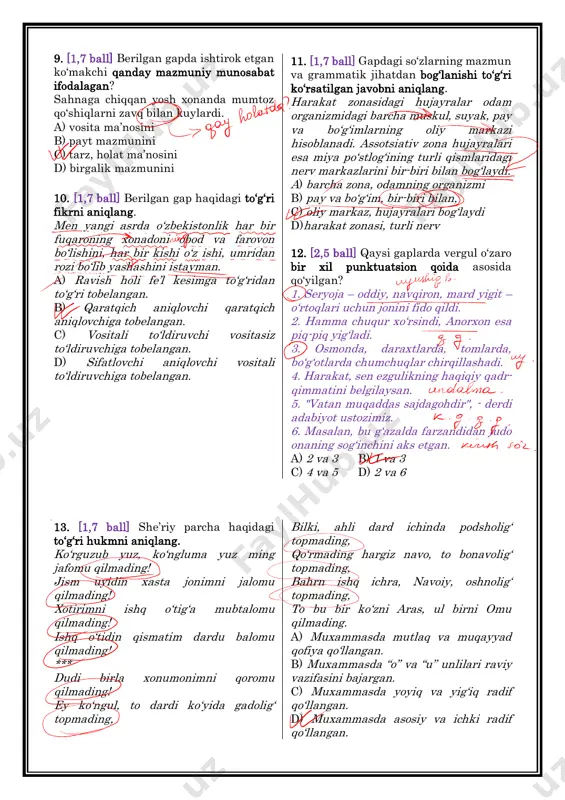 9. [1,7 ball] Berilgan gapda ishtirok etgan
ko‘makchi qanday mazmuniy munosabat
ifodalagan?
Sahnaga chiqqan xosh xonanda mumtoz
qo‘shiqlarni zavq bilan kuylardi.
qay holatda?
A) vosita ma’nosini
B) payt mazmunini
C) tarz, holat ma’nosini
D) birgalik mazmunini
10. [1,7 ball] Berilgan gap haqidagi to‘g‘ri
fikrni aniqlang.
Men yangi asrda o‘zbekistonlik har bir
fuqaroning xonadoni obod va farovon
bo‘lishini, har bir kishi o‘z ishi, umridan
rozi bo‘lib yashashini istayman.
A) Ravish holi fe’l kesimga to‘g‘ridan
to‘g‘ri tobelangan.
B) Qaratqich aniqlovchi qaratqich
aniqlovchiga tobelangan.
C) Vositali to‘ldiruvchi vositasiz
to‘ldiruvchiga tobelangan.
D) Sifatlovchi aniqlovchi vositali
to‘ldiruvchiga tobelangan.
11. [1,7 ball] Gapdagi so‘zlarning mazmun
va grammatik jihatdan bog‘lanishi to‘g‘ri
ko‘rsatilgan javobni aniqlang.
Harakat zonasidagi hujayralar odam
organizmidagi barcha muskul, suyak, pay
va bo‘g‘imlarning oliy markazi
hisoblanadi. Assotsiativ zona hujayralari
esa miya po‘stlog‘ining turli qismlaridagi
nerv markazlarini bir-biri bilan bog‘laydi.
A) barcha zona, odamning organizmi
B) pay va bo‘g‘im, bir-biri bilan.
C) oliy markaz, hujayralari bog‘laydi
D) harakat zonasi, turli nerv
12. [2,5 ball] Qaysi gaplarda vergul o‘zaro
bir xil punktuatsion qoida asosida
qo‘yilgan?
1. Seryoja – oddiy, navqiron, mard yigit –
o‘rtoqlari uchun jonini fido qildi.
2. Hamma chuqur xo‘rsindi, Anorxon esa
piq-piq yig‘ladi.
3. Osmonda, daraxtlarda, tomlarda,
bo‘g‘otlarda chumchuqlar chirqillashadi.
4. Harakat, sen ezgulikning haqiqiy qadr-
qimmatini belgilaysan. undalma.
5. "Vatan muqaddas sajdagohdir", - derdi
adabiyot ustozimiz.
6. Masalan, bu g‘azalda farzandidan judo
onaning sog‘inchini aks etgan. kirish so‘z
A) 2 va 3 B) 1 va 3
C) 4 va 5 D) 2 va 6
13. [1,7 ball] She’riy parcha haqidagi
to‘g‘ri hukmni aniqlang.
Ko‘rguzub yuz, ko‘ngluma yuz ming
jafomu qilmading!
Jism uyidin xasta jonimni jalomu
qilmading!
Xotirimni ishq o‘tig‘a mubtalomu
qilmading!
Ishq o‘tidin qismatim dardu balomu
qilmading!
***
Dudi birla xonumonimni qoromu
qilmading!
Ey ko‘ngul, to dardi ko‘yida gadolig‘
topmading,
Bilki, ahli dard ichinda podsholig‘
topmading,
Qo‘rmading hargiz navo, to bonavolig‘
topmading,
Bahrn ishq ichra, Navoiy, oshnolig‘
topmading,
To bu bir ko‘zni Aras, ul birni Omu
qilmading.
A) Muxammasda mutlaq va muqayyad
qofiya qo‘llangan.
B) Muxammasda “o” va “u” unlilari raviy
vazifasini bajargan.
C) Muxammasda yoyiq va yig‘iq radif
qo‘llangan.
D) Muxammasda asosiy va ichki radif
qo‘llangan.
FaylHub.uz